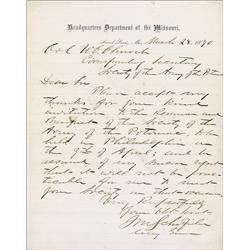 Headquarters Department of the Missouri,
March 28. 1870
Col W. C. Church
Corresponding Secretary
Society of the Army of the Potomac
Dear Sir
Please accept my
thanks for your kind
invitation to the Reunion and
Banquet of the Society of the
Army of the Potomac, to be
held in Philadelphia
on the of April, and be
assured of my sincere regret
that it will not be prac-
ticable for me to meet
your Society on that occasion
Very Respectfully
Your Obt. Servt.